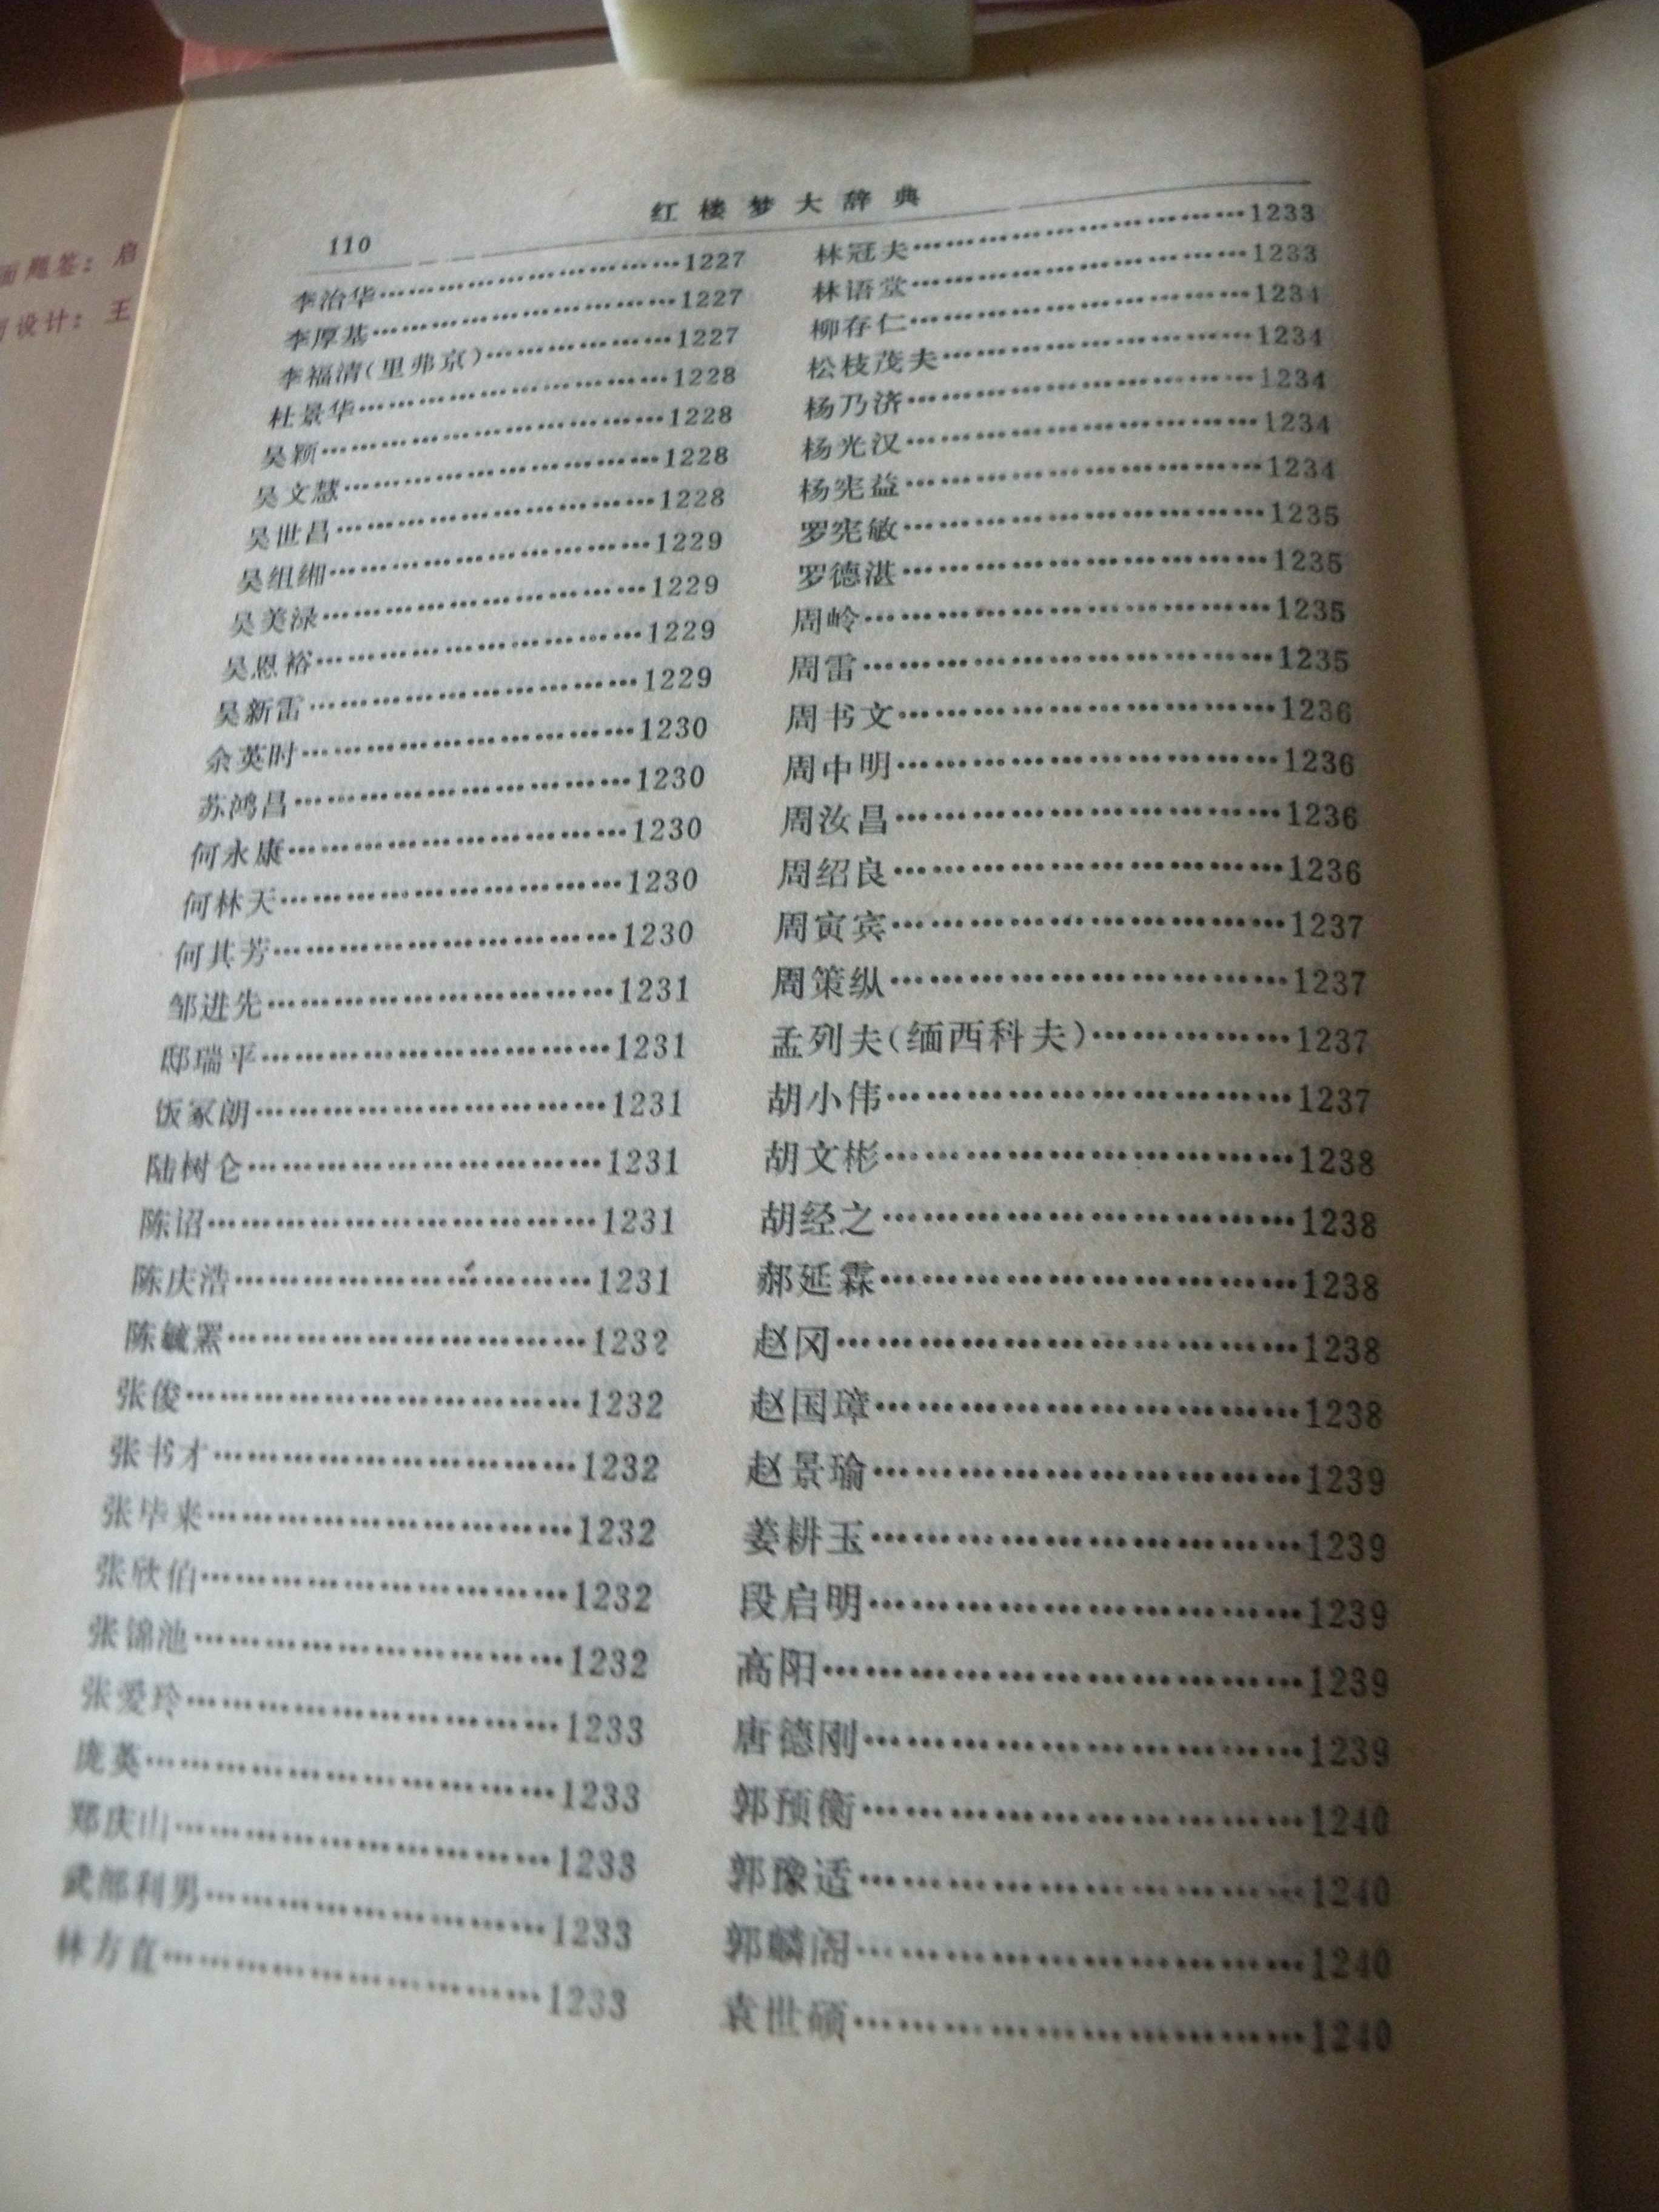 面题签：启
设计：王
110
红楼梦大辞典
李治华…………………………1227
李厚基…………………………1227
李福清（里弗京）………………1227
杜景华…………………………1228
吴颖……………………………1228
吴文慧…………………………1228
吴世昌…………………………1228
吴组缃…………………………1229
吴美渌…………………………1229
吴恩裕…………………………1229
吴新雷…………………………1229
余英时…………………………1230
苏鸿昌…………………………1230
何永康…………………………1230
何林天…………………………1230
何其芳…………………………1230
邹进先…………………………1231
邸瑞平…………………………1231
饭冢朗…………………………1231
陆树仑…………………………1231
陈诏……………………………1231
陈庆浩…………………………1231
陈毓罴…………………………1232
张俊……………………………1232
张书才…………………………1232
张毕来…………………………1232
张欣伯…………………………1232
张锦池…………………………1232
张爱玲…………………………1233
庞英……………………………1233
郑庆山…………………………1233
武部利男………………………1233
林方直…………………………1233
林冠夫…………………………1233
林语堂…………………………1233
柳存仁…………………………1234
松枝茂夫………………………1234
杨乃济…………………………1234
杨光汉…………………………1234
杨宪益…………………………1234
罗宪敏…………………………1235
罗德湛…………………………1235
周岭……………………………1235
周雷……………………………1235
周书文…………………………1236
周中明…………………………1236
周汝昌…………………………1236
周绍良…………………………1236
周寅宾…………………………1237
周策纵…………………………1237
孟列夫（缅西科夫）……………1237
胡小伟…………………………1237
胡文彬…………………………1238
胡经之…………………………1238
郝延霖…………………………1238
赵冈……………………………1238
赵国璋…………………………1238
赵景瑜…………………………1239
姜耕玉…………………………1239
段启明…………………………1239
高阳……………………………1239
唐德刚…………………………1239
郭预衡…………………………1240
郭豫适…………………………1240
郭麟阁…………………………1240
袁世硕…………………………1240